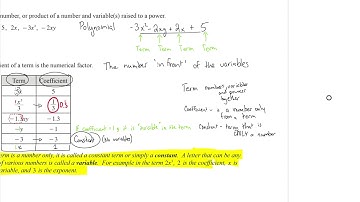 number, or product of a number and variable(s) raised to a power.
5, 2x, -3x², -2xy
Polynomial -3x² - 2xy + 2x + 5
Term Term Term Term
ent of a term is the numerical factor.
The number 'in front' of the variables
Term Coefficient
5
-1.3
-1
-3 -3
1x 1
Constant (no variable)
Term numbers, variables and powers together
Coefficient - a number only from a term
Constant - term that is ONLY a number
erm is a number only, it is called a constant term or simply a constant. A letter that can be any
of various numbers is called a variable. For example in the term 2x³, 2 is the coefficient, x is
variable, and 3 is the exponent.